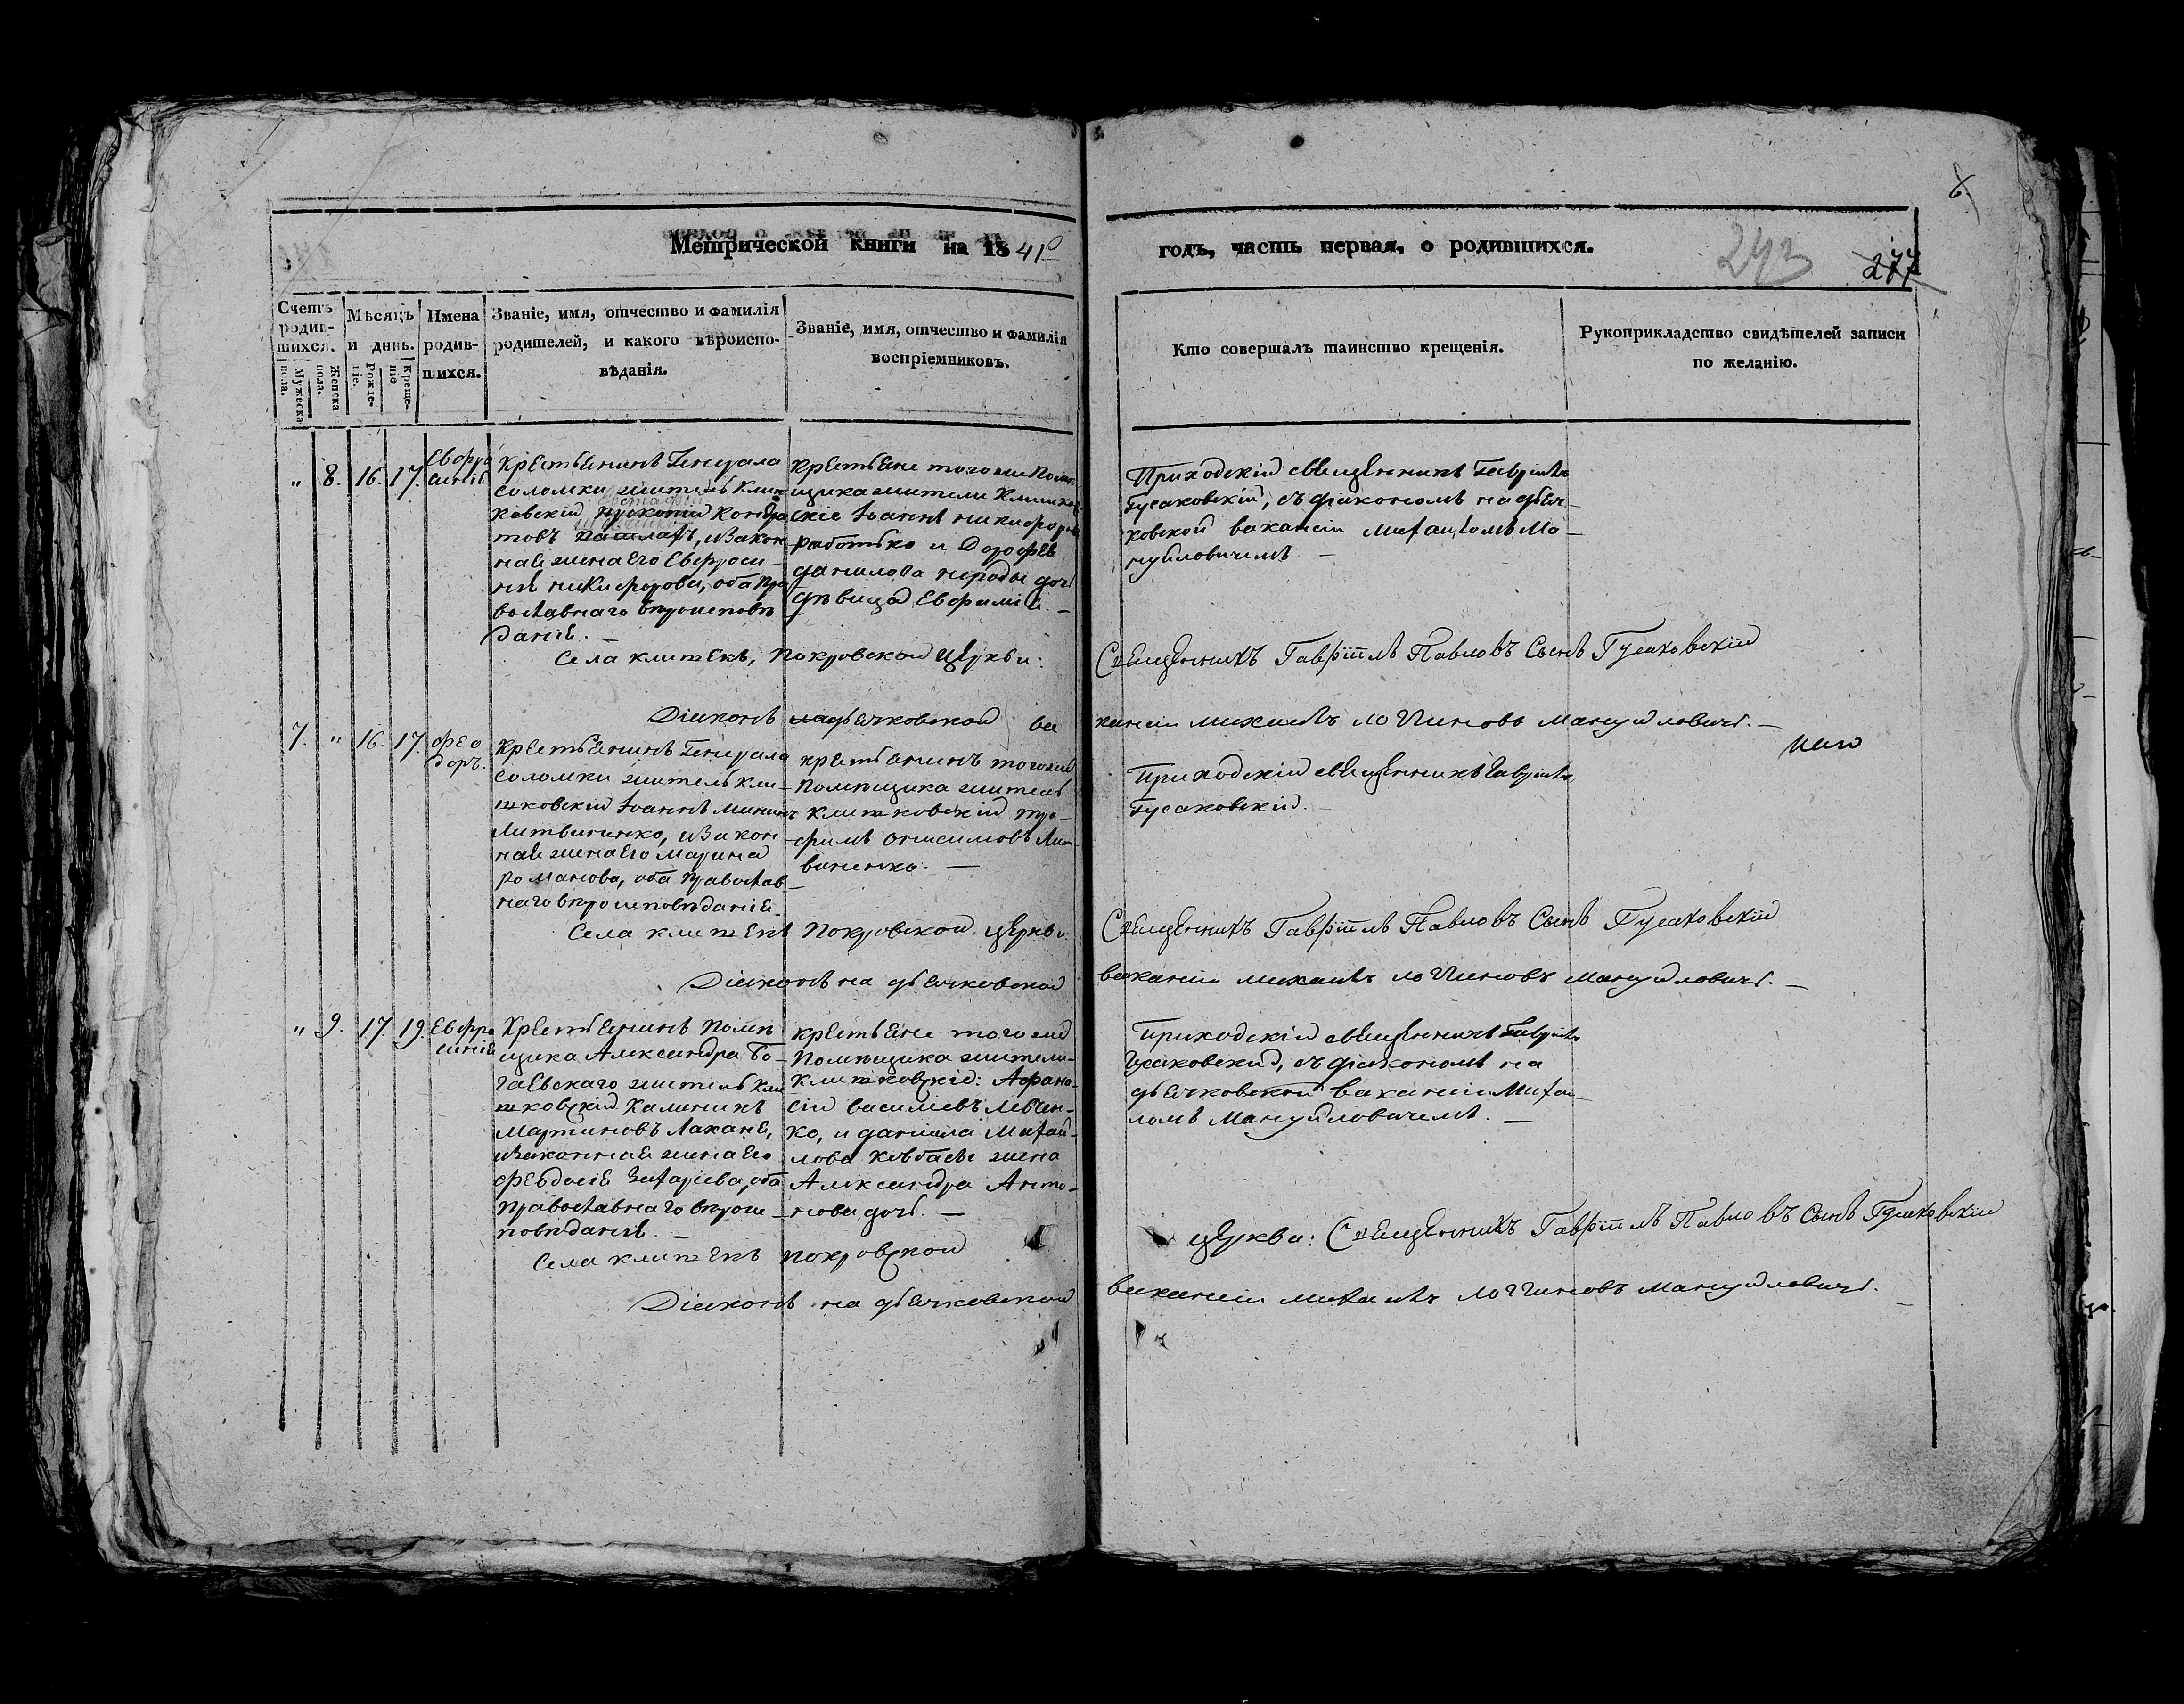 Метрической книги на 1841°
годъ, часть первая, о родившихся.
243
277
Счетъ родив-шихся.
Мужеска пола.
Женска пола.
Мѣсяцъ и день.
Рожде-ніе.
Креще-ніе
Имена родив-шихся.
Званіе, имя, отчество и фамилія
родителей, и какого вѣроиспо-
вѣданія.
Званіе, имя, отчество и фамилія
воспріемниковъ.
Кто совершалъ таинство крещенія.
Рукоприкладство свидѣтелей записи
по желанію.
" 8. 16. 17.
Евфро
синія
Крестьянинъ Генерала
Соломки житель Клиш
ковскій Прокопій Кондра
товъ, и закон
ная жена его Евфроси-
нія Никифорова, оба пра
вославнаго вѣроисповѣ
данія. —
крестьяне того же помѣ
щика жители Клишков
скіе Іоаннъ Никифоровъ
работько и Дорофея
Данилова дочь
дѣвица Евфимія. —
Приходскій священникъ Гавріилъ
Гусаковскій, съ діакономъ на дьяч-
ковской вакансіи Михаиломъ Ма-
нуйловичемъ —
Села Клишекъ, Покровской церкви:
Священникъ Гавріилъ Павловъ Сынъ Гусаковскій
Діаконъ на дьячковской ва
кансіи Михаилъ Логгиновъ Мануйловичъ. —
7. " 16. 17.
Фео
доръ.
Крестьянинъ Генерала
Соломки житель Кли-
шковскій Іоаннъ Мининъ
Литвиненко, и закон-
ная жена его Марина
Романова, оба православ-
наго вѣроисповѣданія.
крестьянинъ того же
помѣщика житель
Клишковскій Тро-
фимъ Онисимовъ Лит-
виненко. —
Приходскій священникъ Гавріилъ
Гусаковскій. —
Села Клишекъ Покровской церкви.
Священникъ Гавріилъ Павловъ Сынъ Гусаковскій
Діаконъ на дьячковской
вакансіи Михаилъ Логгиновъ Мануйловичъ. —
" 9. 17. 19.
Евфро
синія
Крестьянинъ помѣ
щика Александра Бо-
гаевскаго житель Кли
шковскій Калиникъ
Мартиновъ Лахане,
и законная жена его
Феодосія Захаріева, оба
православнаго вѣроис-
повѣданія. —
крестьяне того же
помѣщика жители-
Клишковскіе: Афана-
сій Василіевъ Левчен-
ко, и Даніила Михай-
лова Ковбасы жена
Александра Анто-
нова дочь. —
Приходскій священникъ Гавріилъ
Гусаковскій, съ діакономъ на
дьячковской вакансіи Михаи-
ломъ Мануйловичемъ. —
Села Клишекъ Покровской
церкви: Священникъ Гавріилъ Павловъ Сынъ Гусаковскій
Діаконъ на дьячковской
вакансіи Михаилъ Логгиновъ Мануйловичъ. —